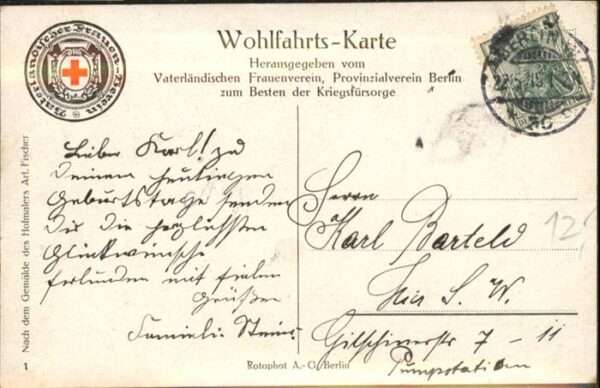 Vaterländischer Frauen-Verein
Wohlfahrts-Karte
Herausgegeben vom
Vaterländischen Frauenverein, Provinzialverein Berlin
zum Besten der Kriegsfürsorge
BERLIN
Lieber Karl! zu
Deinem heutigen
Geburtstage senden
Dir die herzlichsten
Glückwünsche
mit fielen
Grüßen
Familie
Herrn
Karl Barteld
Hier S. W.
Gitschinerstraße 7 - 11
Pumpstation
12
Nach dem Gemälde des Hofmalers Art. Fischer
1
Rotophot A.-G. Berlin